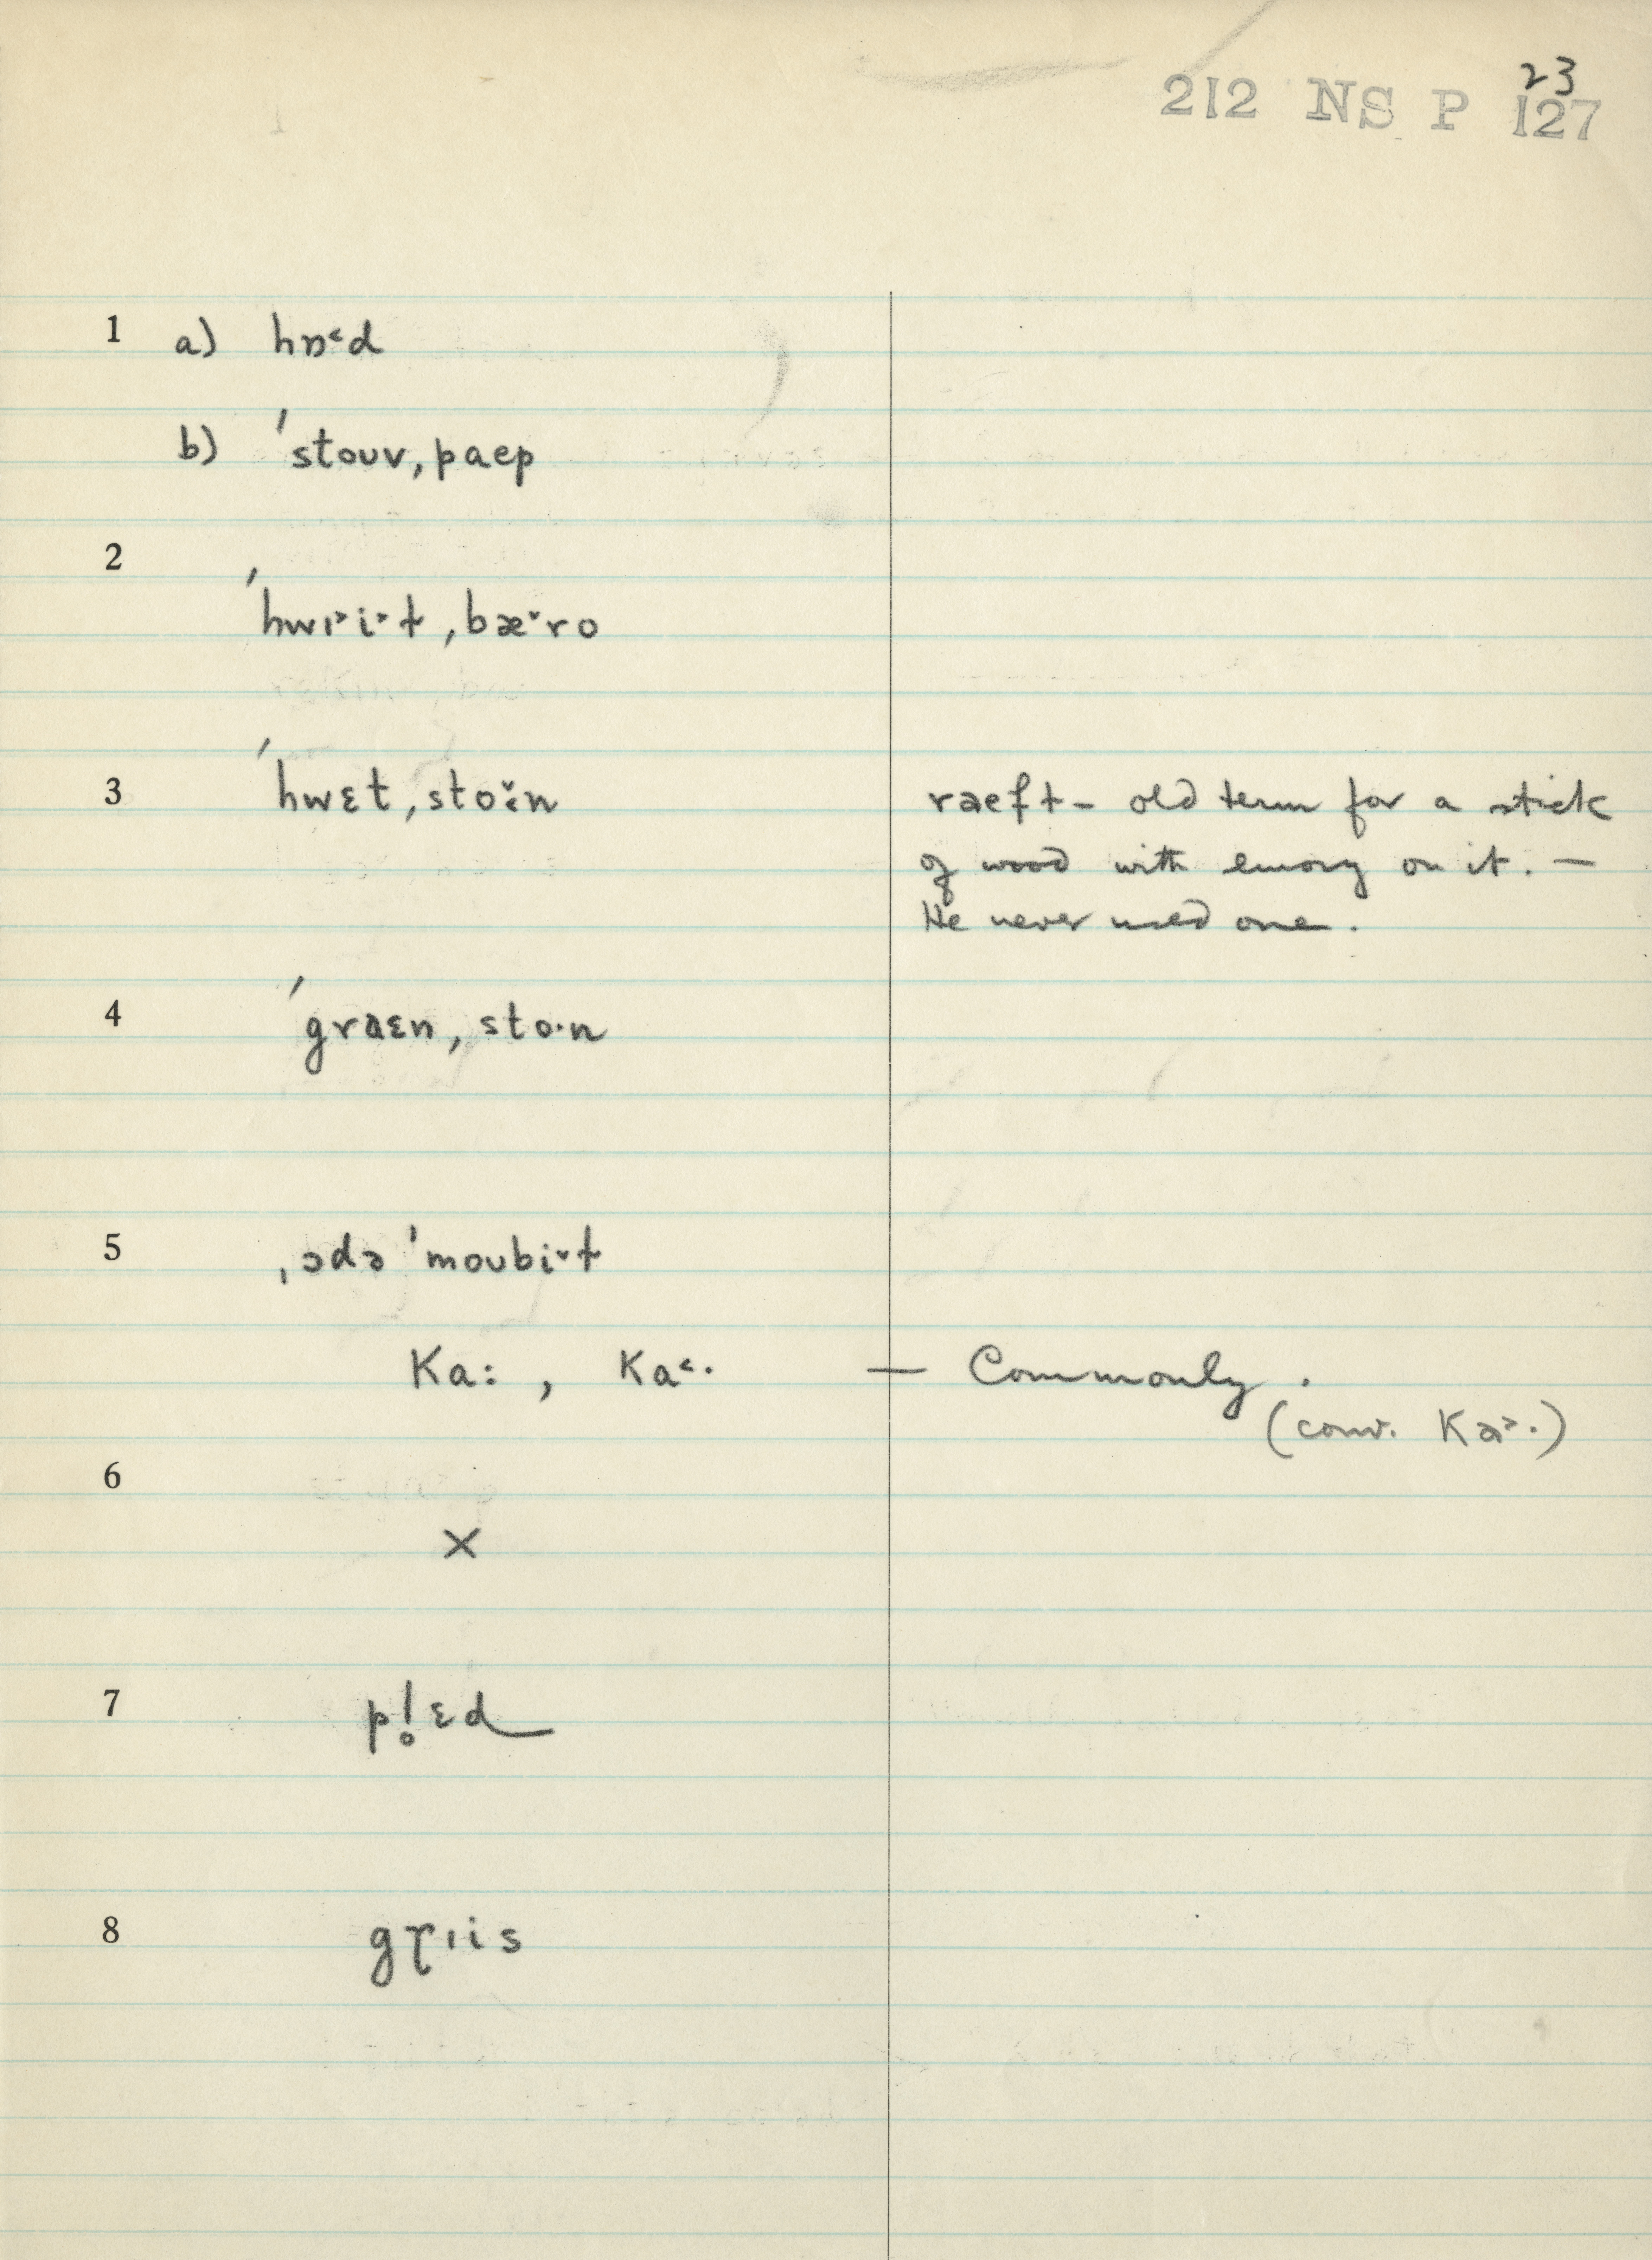 23
212 NS P 127
1 a) hɒ˂d
b) ˈstouv, paep
2
ˈhwɪ˃i˃t, bæ˅ro
3 ˈhwɛt, stoˑ˅n raeft – old term for a stick
of wood with emory on it. —
He never used one.
4 ˈgraɛn, stoˑn
5 ˌədə ˈmoubi˅t
Ka: , Ka˂· — Commonly.
(conv. Ka˃·)
6
×
7 pl̥ɛd
8 gɽɪis